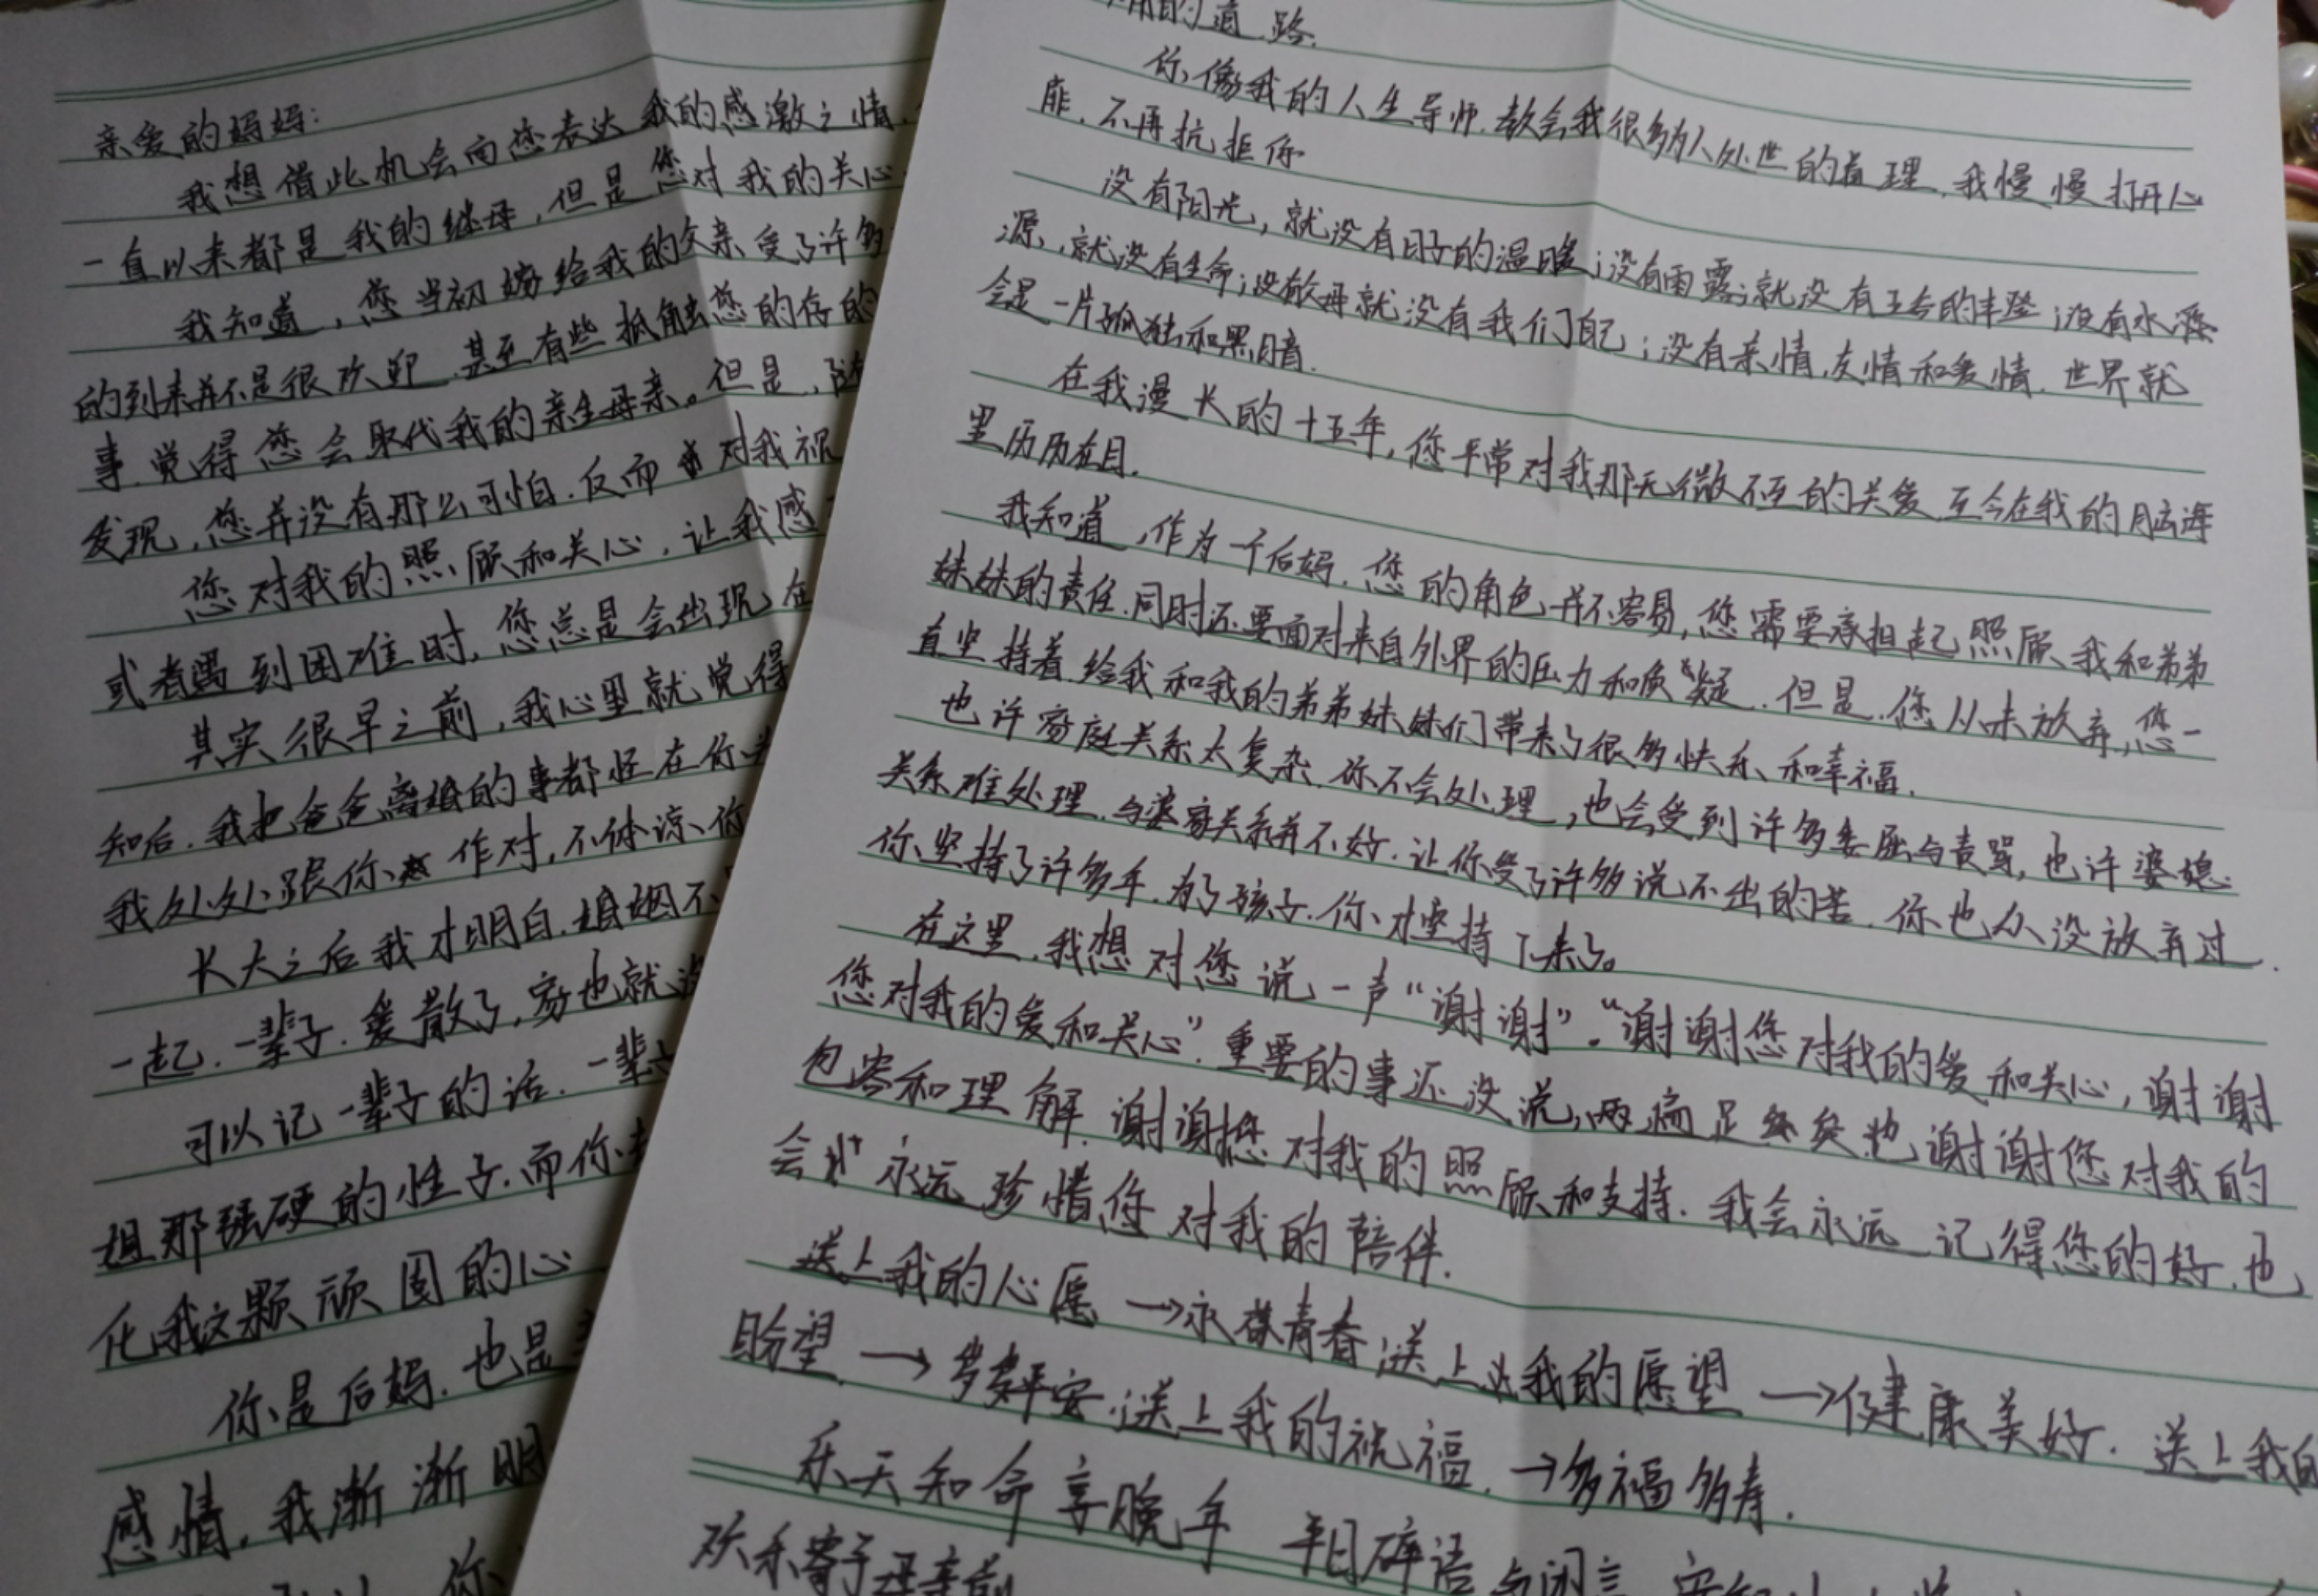 亲爱的妈妈：
我想借此机会向您表达我的感激之情，
一直以来都是我的继母，但是您对我的关心
我知道，您当初嫁给我的父亲受了许多
的到来并不是很欢迎，甚至有些抵触您的存的
事，觉得您会取代我的亲生母亲。但是，随
发现，您并没有那么可怕，反而对我视
您对我的照顾和关心，让我感
或者遇到困难时，您总是会出现在
其实很早之前，我心里就觉得
知后，我把爸爸离婚的事都怪在你
我处处跟你作对，不体谅你
长大之后我才明白，婚姻不
一起，一辈子，爱散了，家也就
可以记一辈子的话，一辈子
那强硬的性子，而你
化我这颗顽固的心
你是后妈，也是
感情，我渐渐明
你
的道路。
你像我的人生导师，教会我很多为人处世的道理，我慢慢打开心
扉，不再抗拒你
没有阳光，就没有日子的温暖；没有雨露，就没有五谷的丰登；没有水源
源，就没有生命；没有父母就没有我们自己；没有亲情，友情和爱情，世界就
会是一片孤独和黑暗。
在我漫长的十五年，您平常对我那无微不至的关爱，至今在我的脑海
里历历在目。
我知道，作为一个后妈，您的角色并不容易，您需要承担起照顾我和弟弟
妹妹的责任，同时还要面对来自外界的压力和质疑，但是，您从未放弃，您一
直坚持着，给我和我的弟弟妹妹们带来了很多快乐和幸福。
也许家庭关系太复杂，你不会处理，也会受到许多委屈与责骂，也许婆媳
关系难处理，与婆家关系并不好，让你受了许多说不出的苦，你也从没放弃过，
你坚持了许多年，为了孩子，你才坚持下来了。
在这里，我想对您说一声“谢谢”。“谢谢您对我的爱和关心，谢谢
您对我的爱和关心”，重要的事还没说，两遍足矣也谢谢您对我的
包容和理解，谢谢您对我的照顾和支持，我会永远记得您的好，也
会永远珍惜您对我的陪伴。
送上我的心愿→永葆青春；送上我的愿望→健康美好，送上我的
盼望→岁岁平安，送上我的祝福，→多福多寿。
乐天知命享晚年 平日碎语与闲言
欢乐寄于母亲前